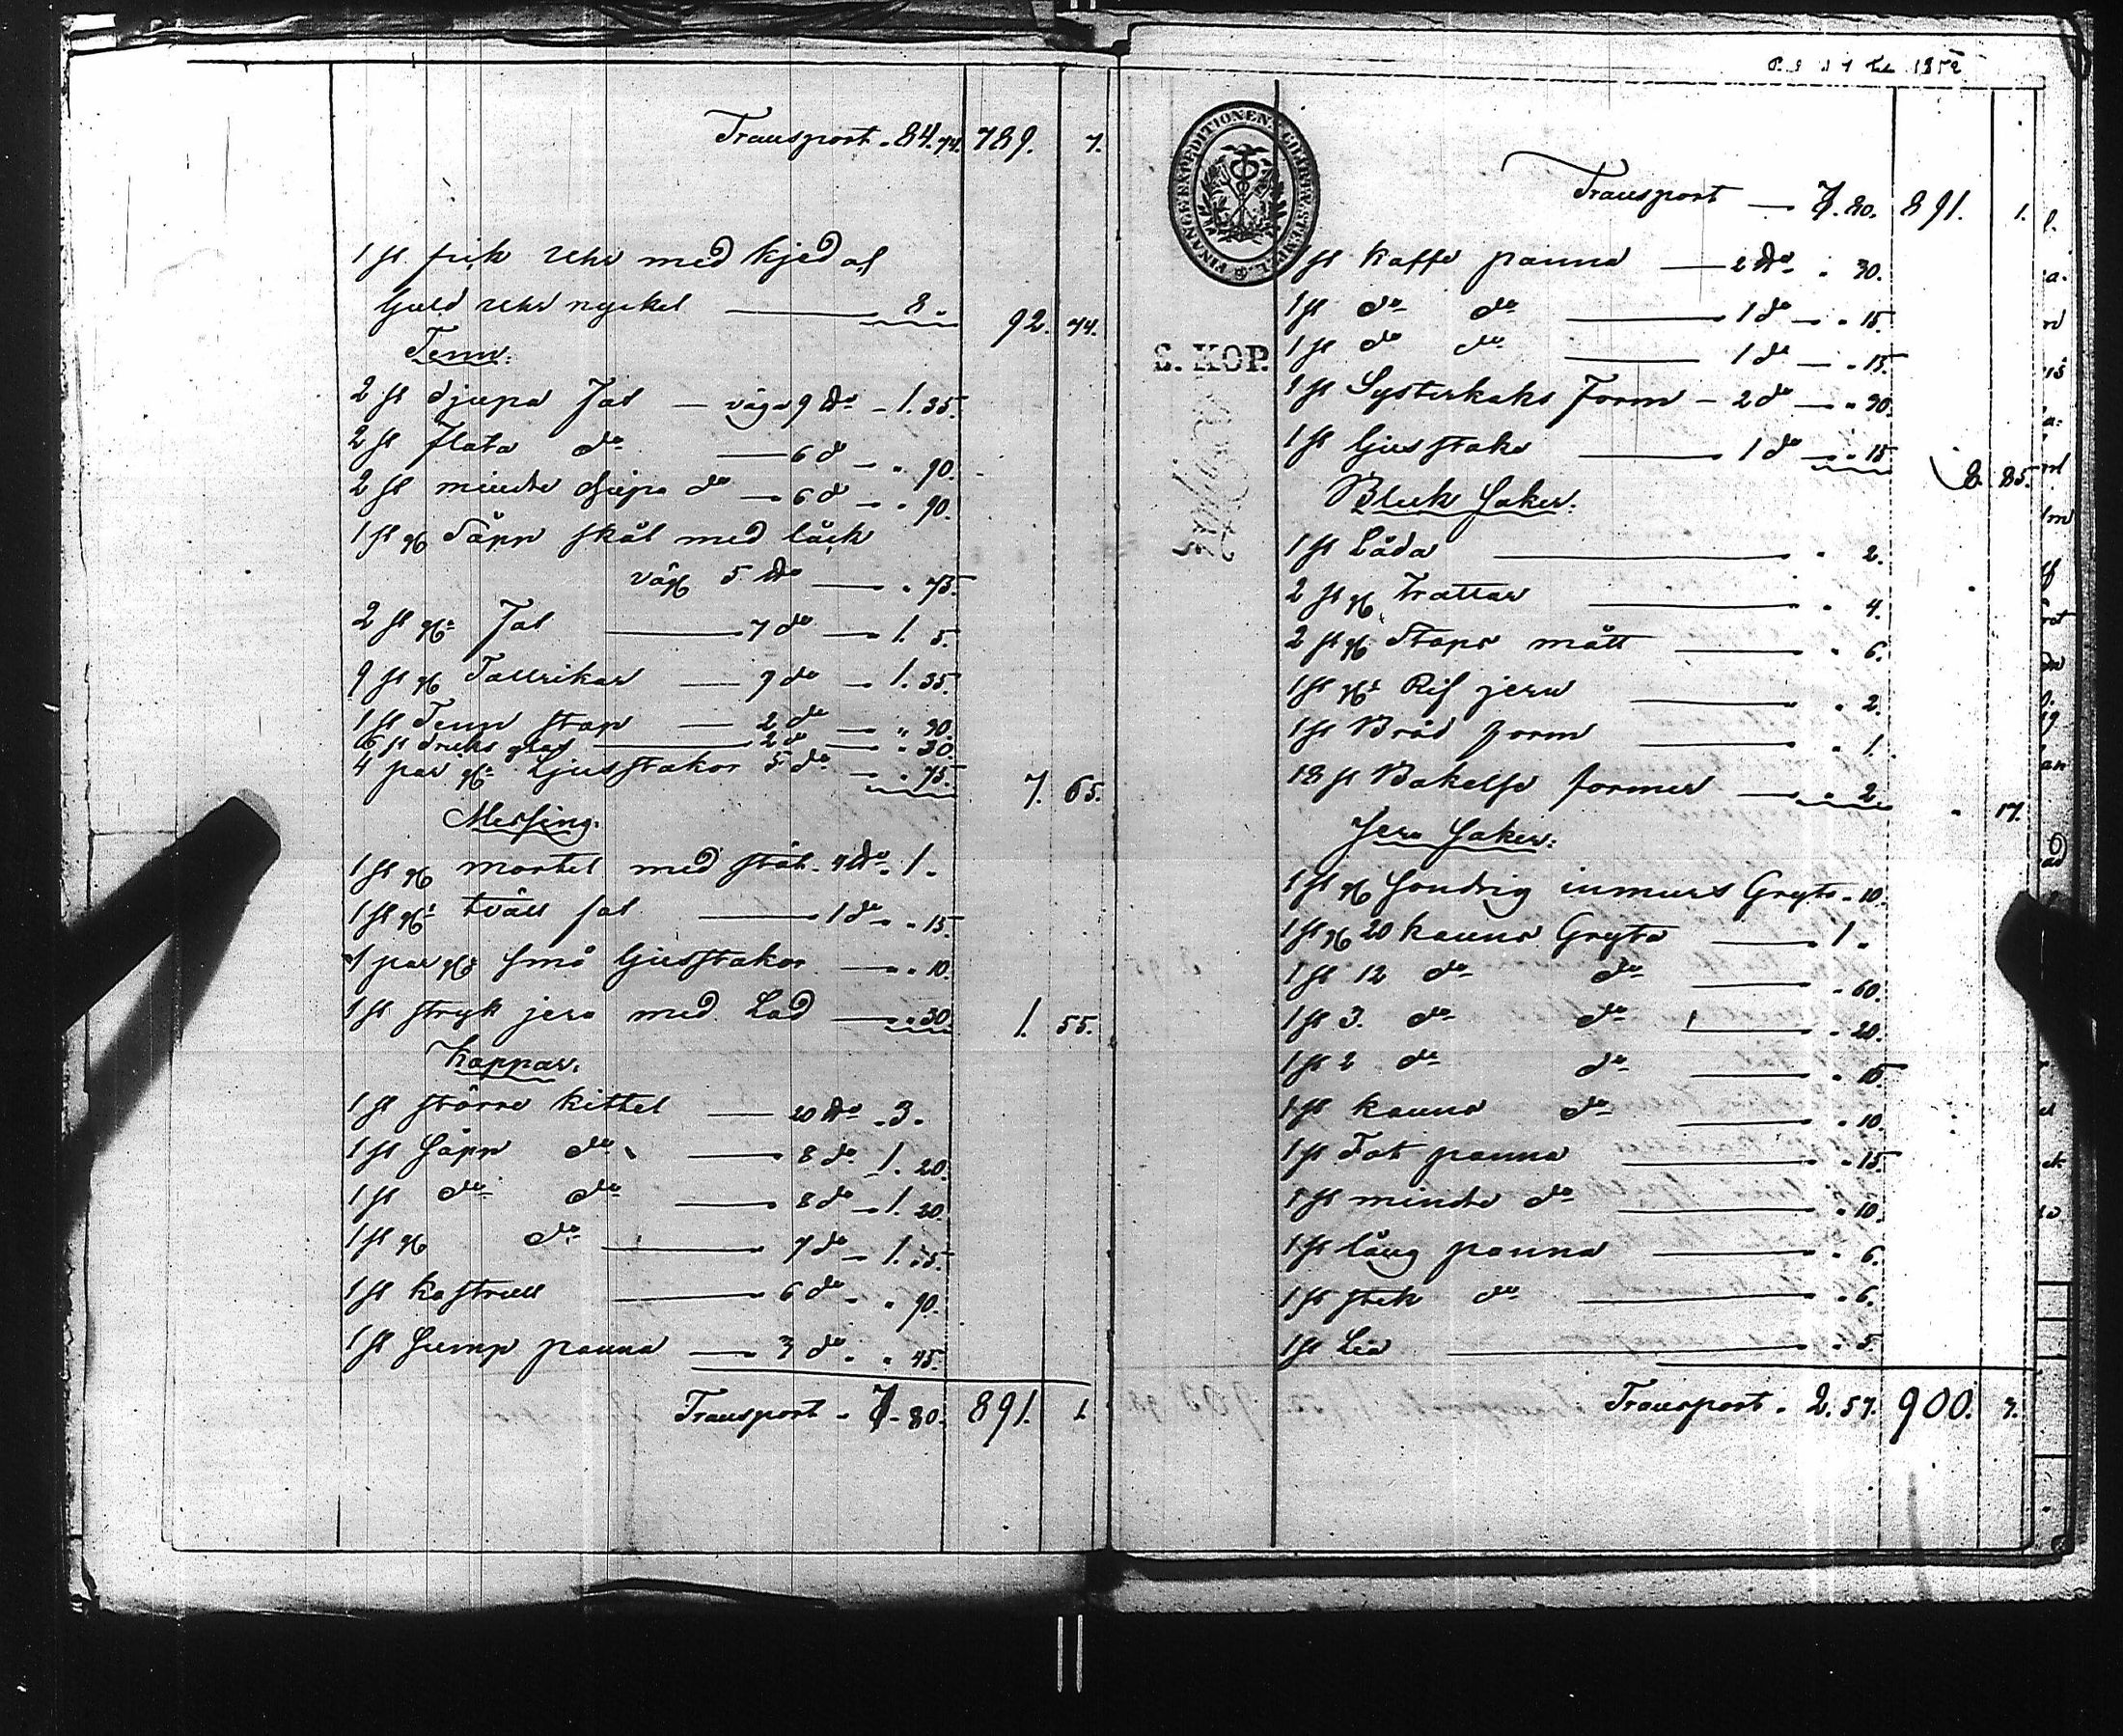 Transport . 84. 74. 789. 7.
1 st fick Uhr med kjed af
Guld Uhr nyckel 8 " 92. 74.
Tenn:
2 st djupa Fat väga 9 ℔r 1. 35.
2 st flata do 6 d " 90.
2 st mindre djupa do 6 d " 90.
1 st gl Såpp skål med låck
väg 5 ℔r " 75.
2 st gl: Fat 7 do 1. 5.
9 st gl Tallrikar 9 do 1. 35.
1 st Tenn stop 2 do " 30.
6 st dricks glas 2 d " 30.
4 par gl: Ljusstakar 5 do " 75. 7. 65.
Messing.
1 st gl mortel med stöt. 4 ℔r. 1 "
1 st gl: tväll fat 1 do " 15.
1 par gl: små ljusstakar " 10.
1 st stryk jern med Lod " 30. 1. 55.
Koppar.
1 st större kittel 20 ℔r 3 "
1 st Såpp do 8 do 1. 20.
1 st do do 8 do 1. 20.
1 st gl do 7 do 1. 55.
1 st kastrull 6 do " 90.
1 st sump panna 3 do " 45.
Transport 7. 80. 891. 1.
1852
FINANCE EXPEDITIONENS CHARTÆ STEMPEL
3. KOP.
Transport 7. 80. 891. 1.
1 st kaffe panna 2 ℔r " 30.
1 st do do 1 do " 15.
1 st do do 1 do " 15.
1 st Systerkaks Form 2 do " 30.
1 st ljusstake 1 do " 15. 8. 85.
Bleck saker:
1 st Låda " 2.
2 st gl Trattar " 4.
2 st gl Stops mått " 6.
1 st gl: Rif jern " 2.
1 st Bröd form " 1.
18 st Bakelse former " 2. " 17.
Jern saker:
1 st gl söndrig inmurd Gryta " 10.
1 st gl 20 kanns Gryta 1 "
1 st 12 do do " 60.
1 st 3. do do " 20.
1 st 2 do do " 15.
1 st kanns do " 10.
1 st Fot panna " 15.
1 st mindre do " 10.
1 st lång panna " 6.
1 st stek do " 6.
1 st Lia " 5.
Transport . 2. 57. 900. 3.